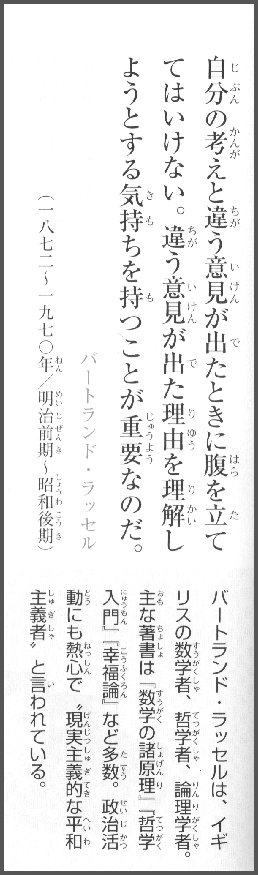 自分の考えと違う意見が出たときに腹を立て
てはいけない。違う意見が出た理由を理解し
ようとする気持ちを持つことが重要なのだ。
バートランド・ラッセル
(一八七二〜一九七〇年/明治前期〜昭和後期)
バートランド・ラッセルは、イギ
リスの数学者、哲学者、論理学者。
主な著書は『数学の諸原理』『哲学
入門』『幸福論』など多数。政治活
動にも熱心で〝現実主義的な平和
主義者〟と言われている。